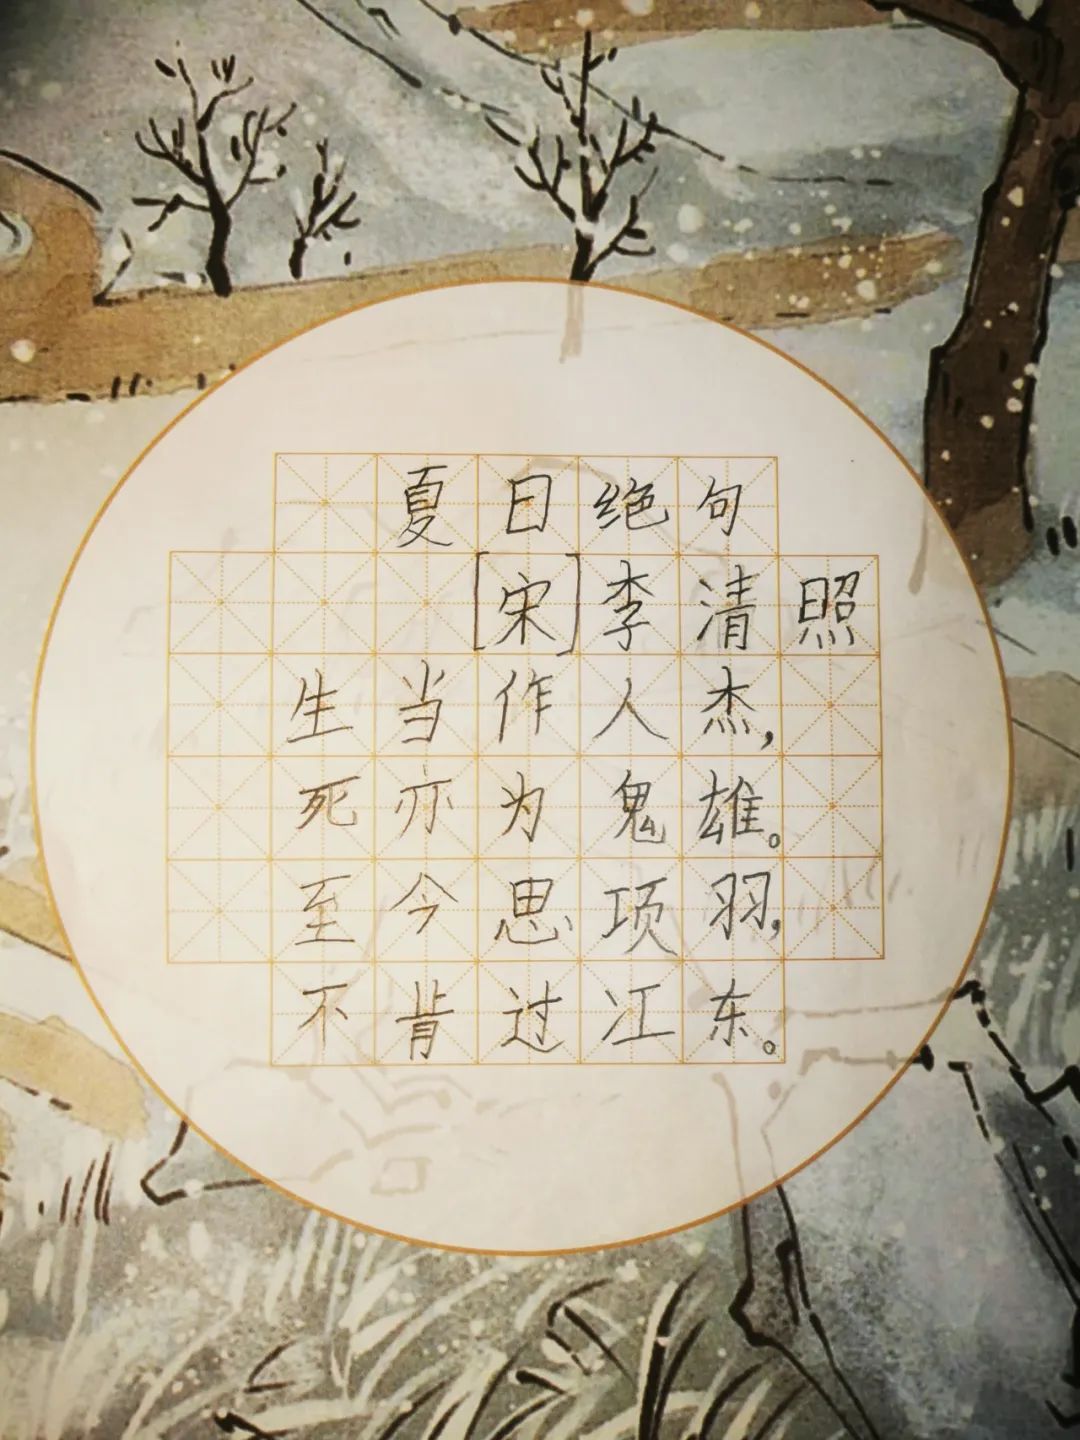 夏日绝句
[宋]李清照
生当作人杰，
死亦为鬼雄。
至今思项羽，
不肯过江东。